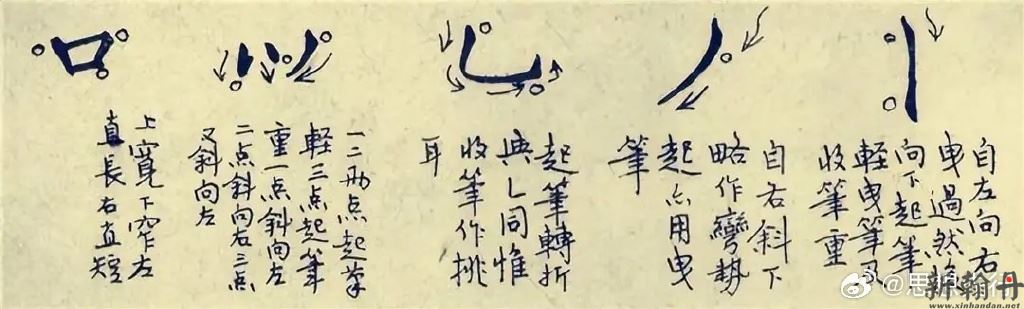 自左向右
曳過然後
向下起筆
軽曳筆及
收筆重
自右斜下
略作彎勢
起亦用曳
筆
起筆轉折
與乚同惟
收筆作挑
耳
一二两点起筆
軽三点起筆
重一点斜向左
二点斜向右三点
又斜向左
上寬下窄左
直長右直短
新翰丹
www.xinhandan.net